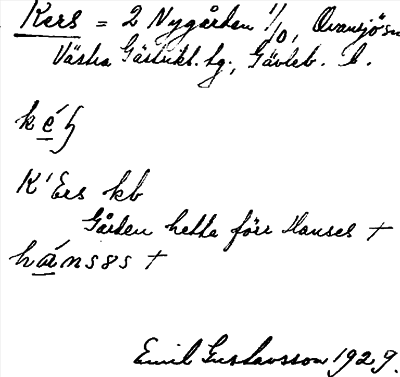 Kers = 2 Nygården 1/0, Ovansjö sn
Västra Gästrikl. hg., Gävleb. l.
K'Ers kb
Gården hette förr Hanses +
Emil Gustavsson 1929.